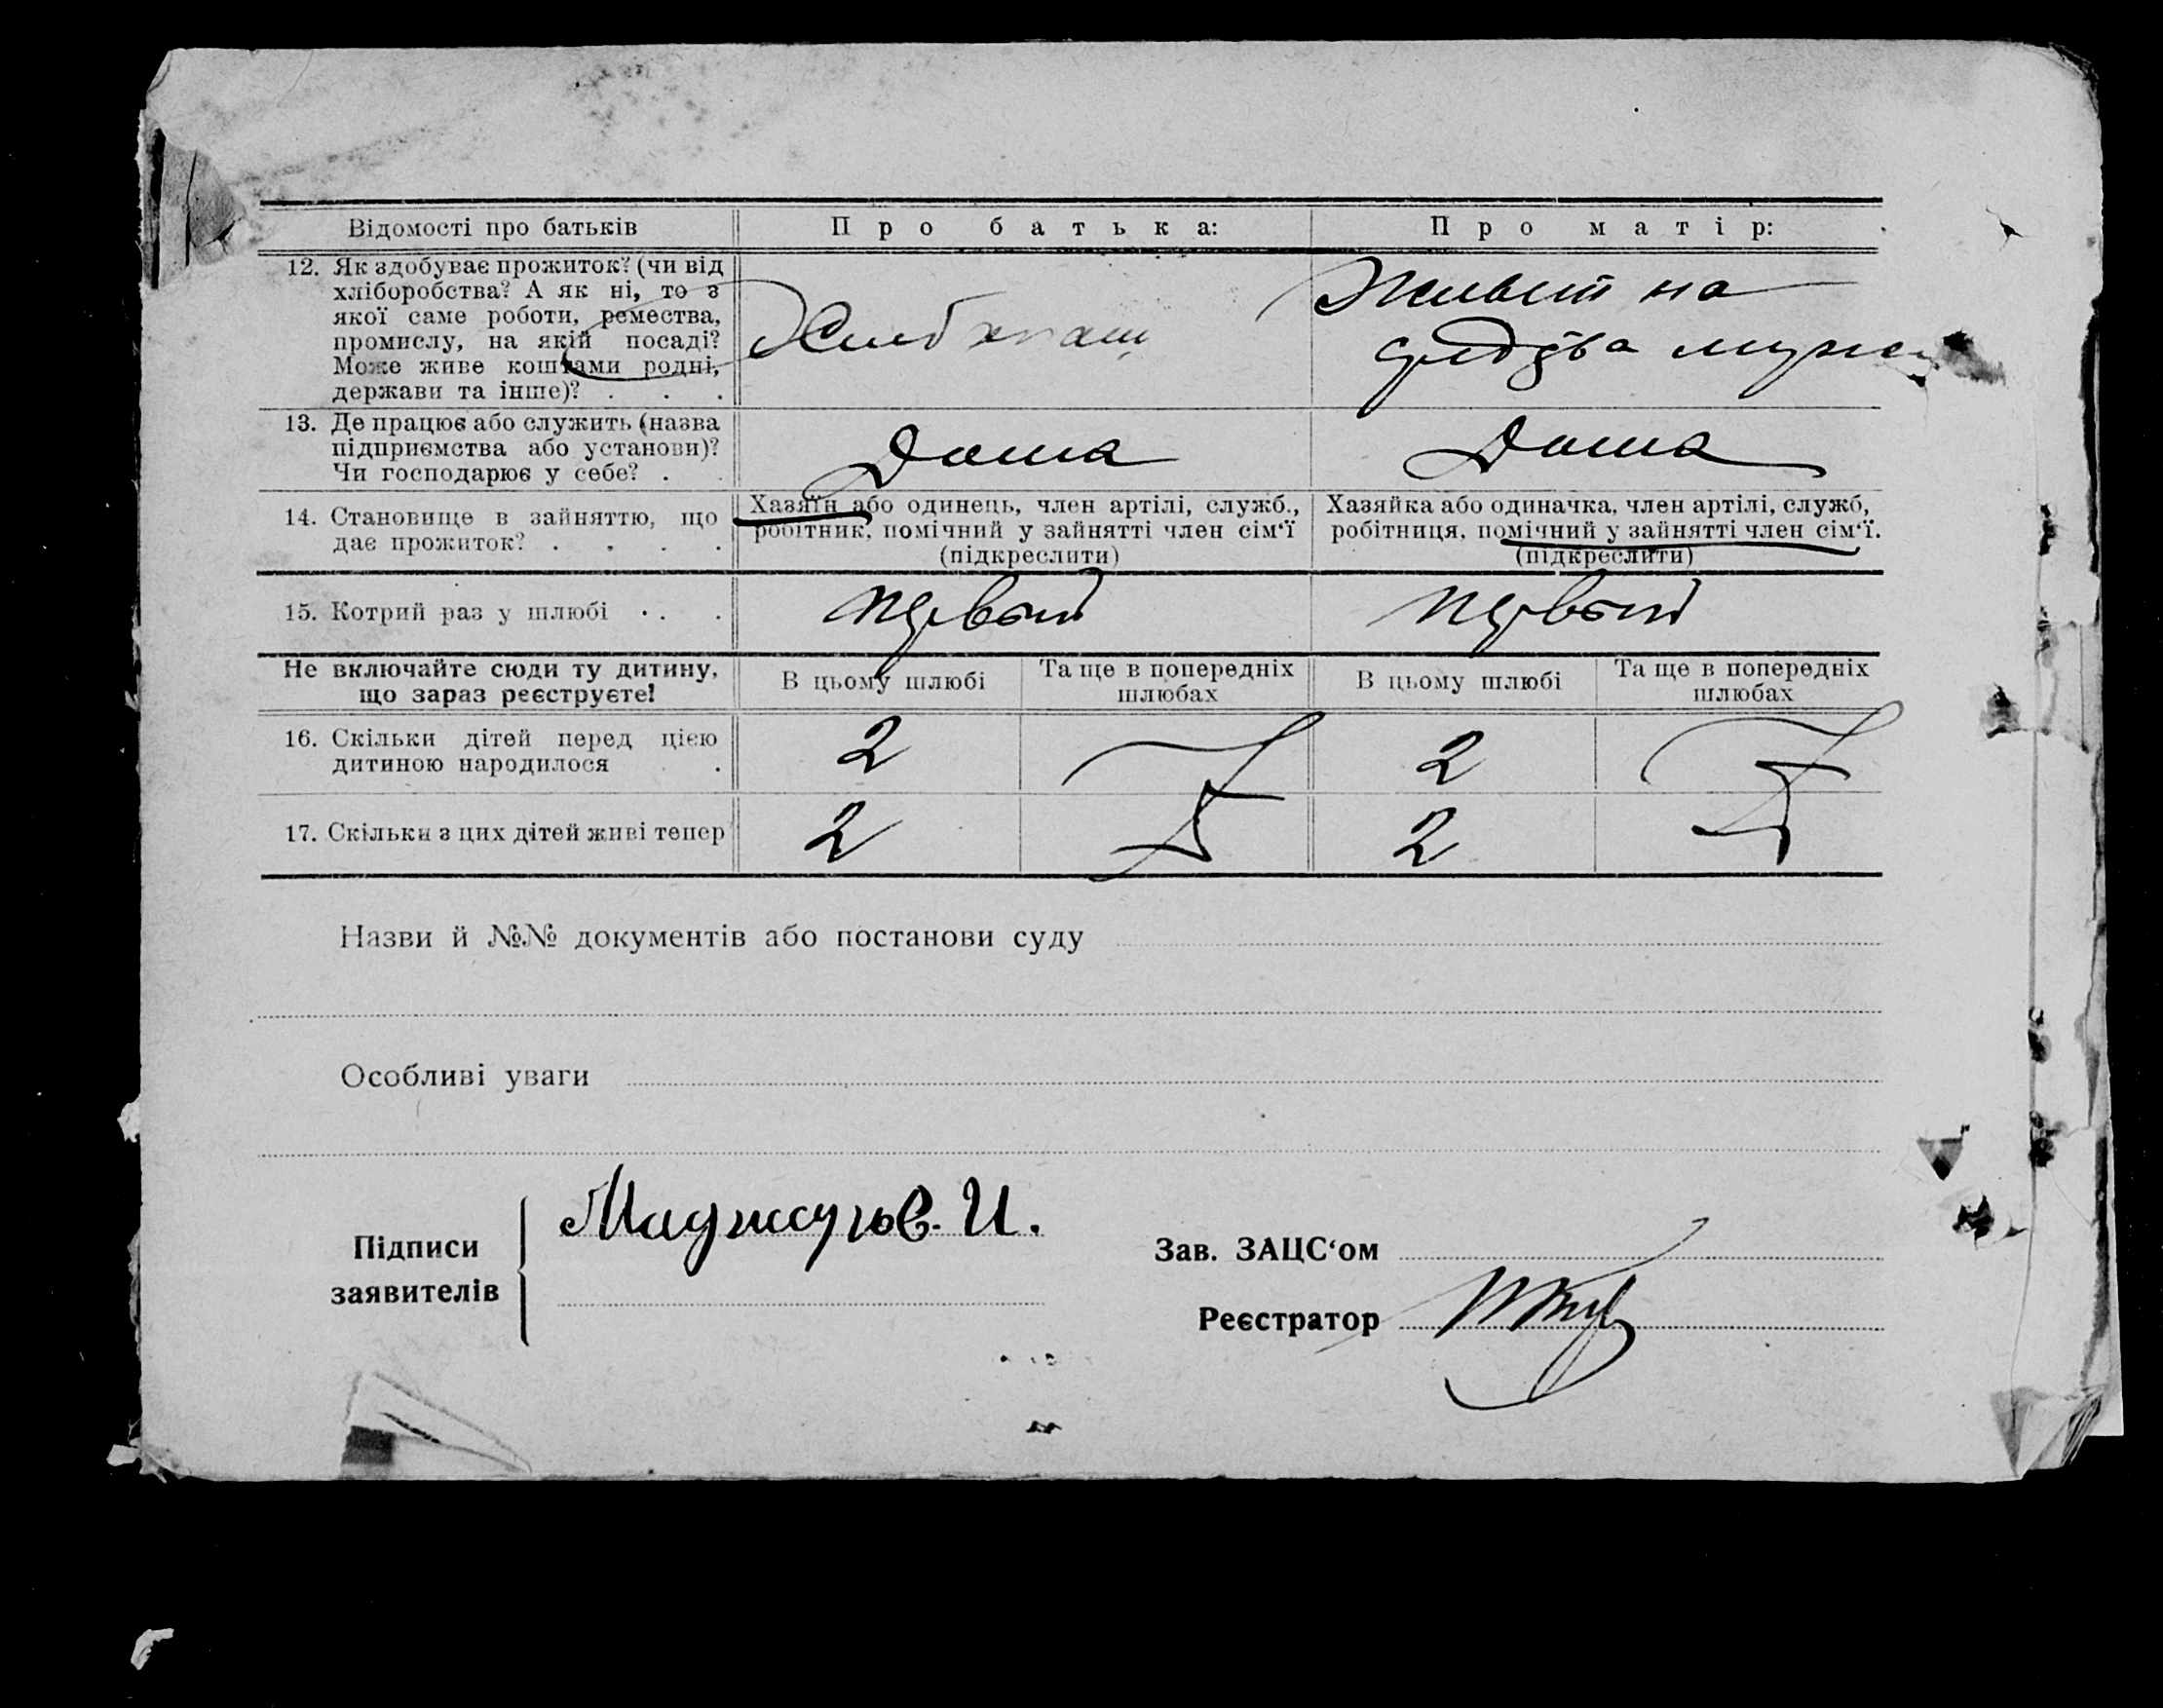 Відомості про батьків
Про батька:
Про матір:
12. Як здобуває прожиток? (чи від
хліборобства? А як ні, то з
якої саме роботи, ремества,
промислу, на якій посаді?
Може живе коштами родні,
держави та інше)? . . .
Живет на
мужа
13. Де працює або служить (назва
підприємства або установи)?
Чи господарює у себе? . .
Дома
Дома
14. Становище в зайняттю, що
дає прожиток? . . . .
Хазяїн або одинець, член артілі, служб.,
робітник, помічний у зайнятті член сім‘ї
(підкреслити)
Хазяйка або одиначка, член артілі, служб,
робітниця, помічний у зайнятті член сім‘ї.
(підкреслити)
15. Котрий раз у шлюбі . . .
первый
первый
Не включайте сюди ту дитину,
що зараз реєструєте!
В цьому шлюбі
Та ще в попередніх
шлюбах
В цьому шлюбі
Та ще в попередніх
шлюбах
16. Скільки дітей перед цією
дитиною народилося .
2
2
17. Скільки з цих дітей живі тепер
2
2
Назви й №№ документів або постанови суду
Особливі уваги
Підписи
заявителів
И.
Зав. ЗАЦС‘ом
Реєстратор